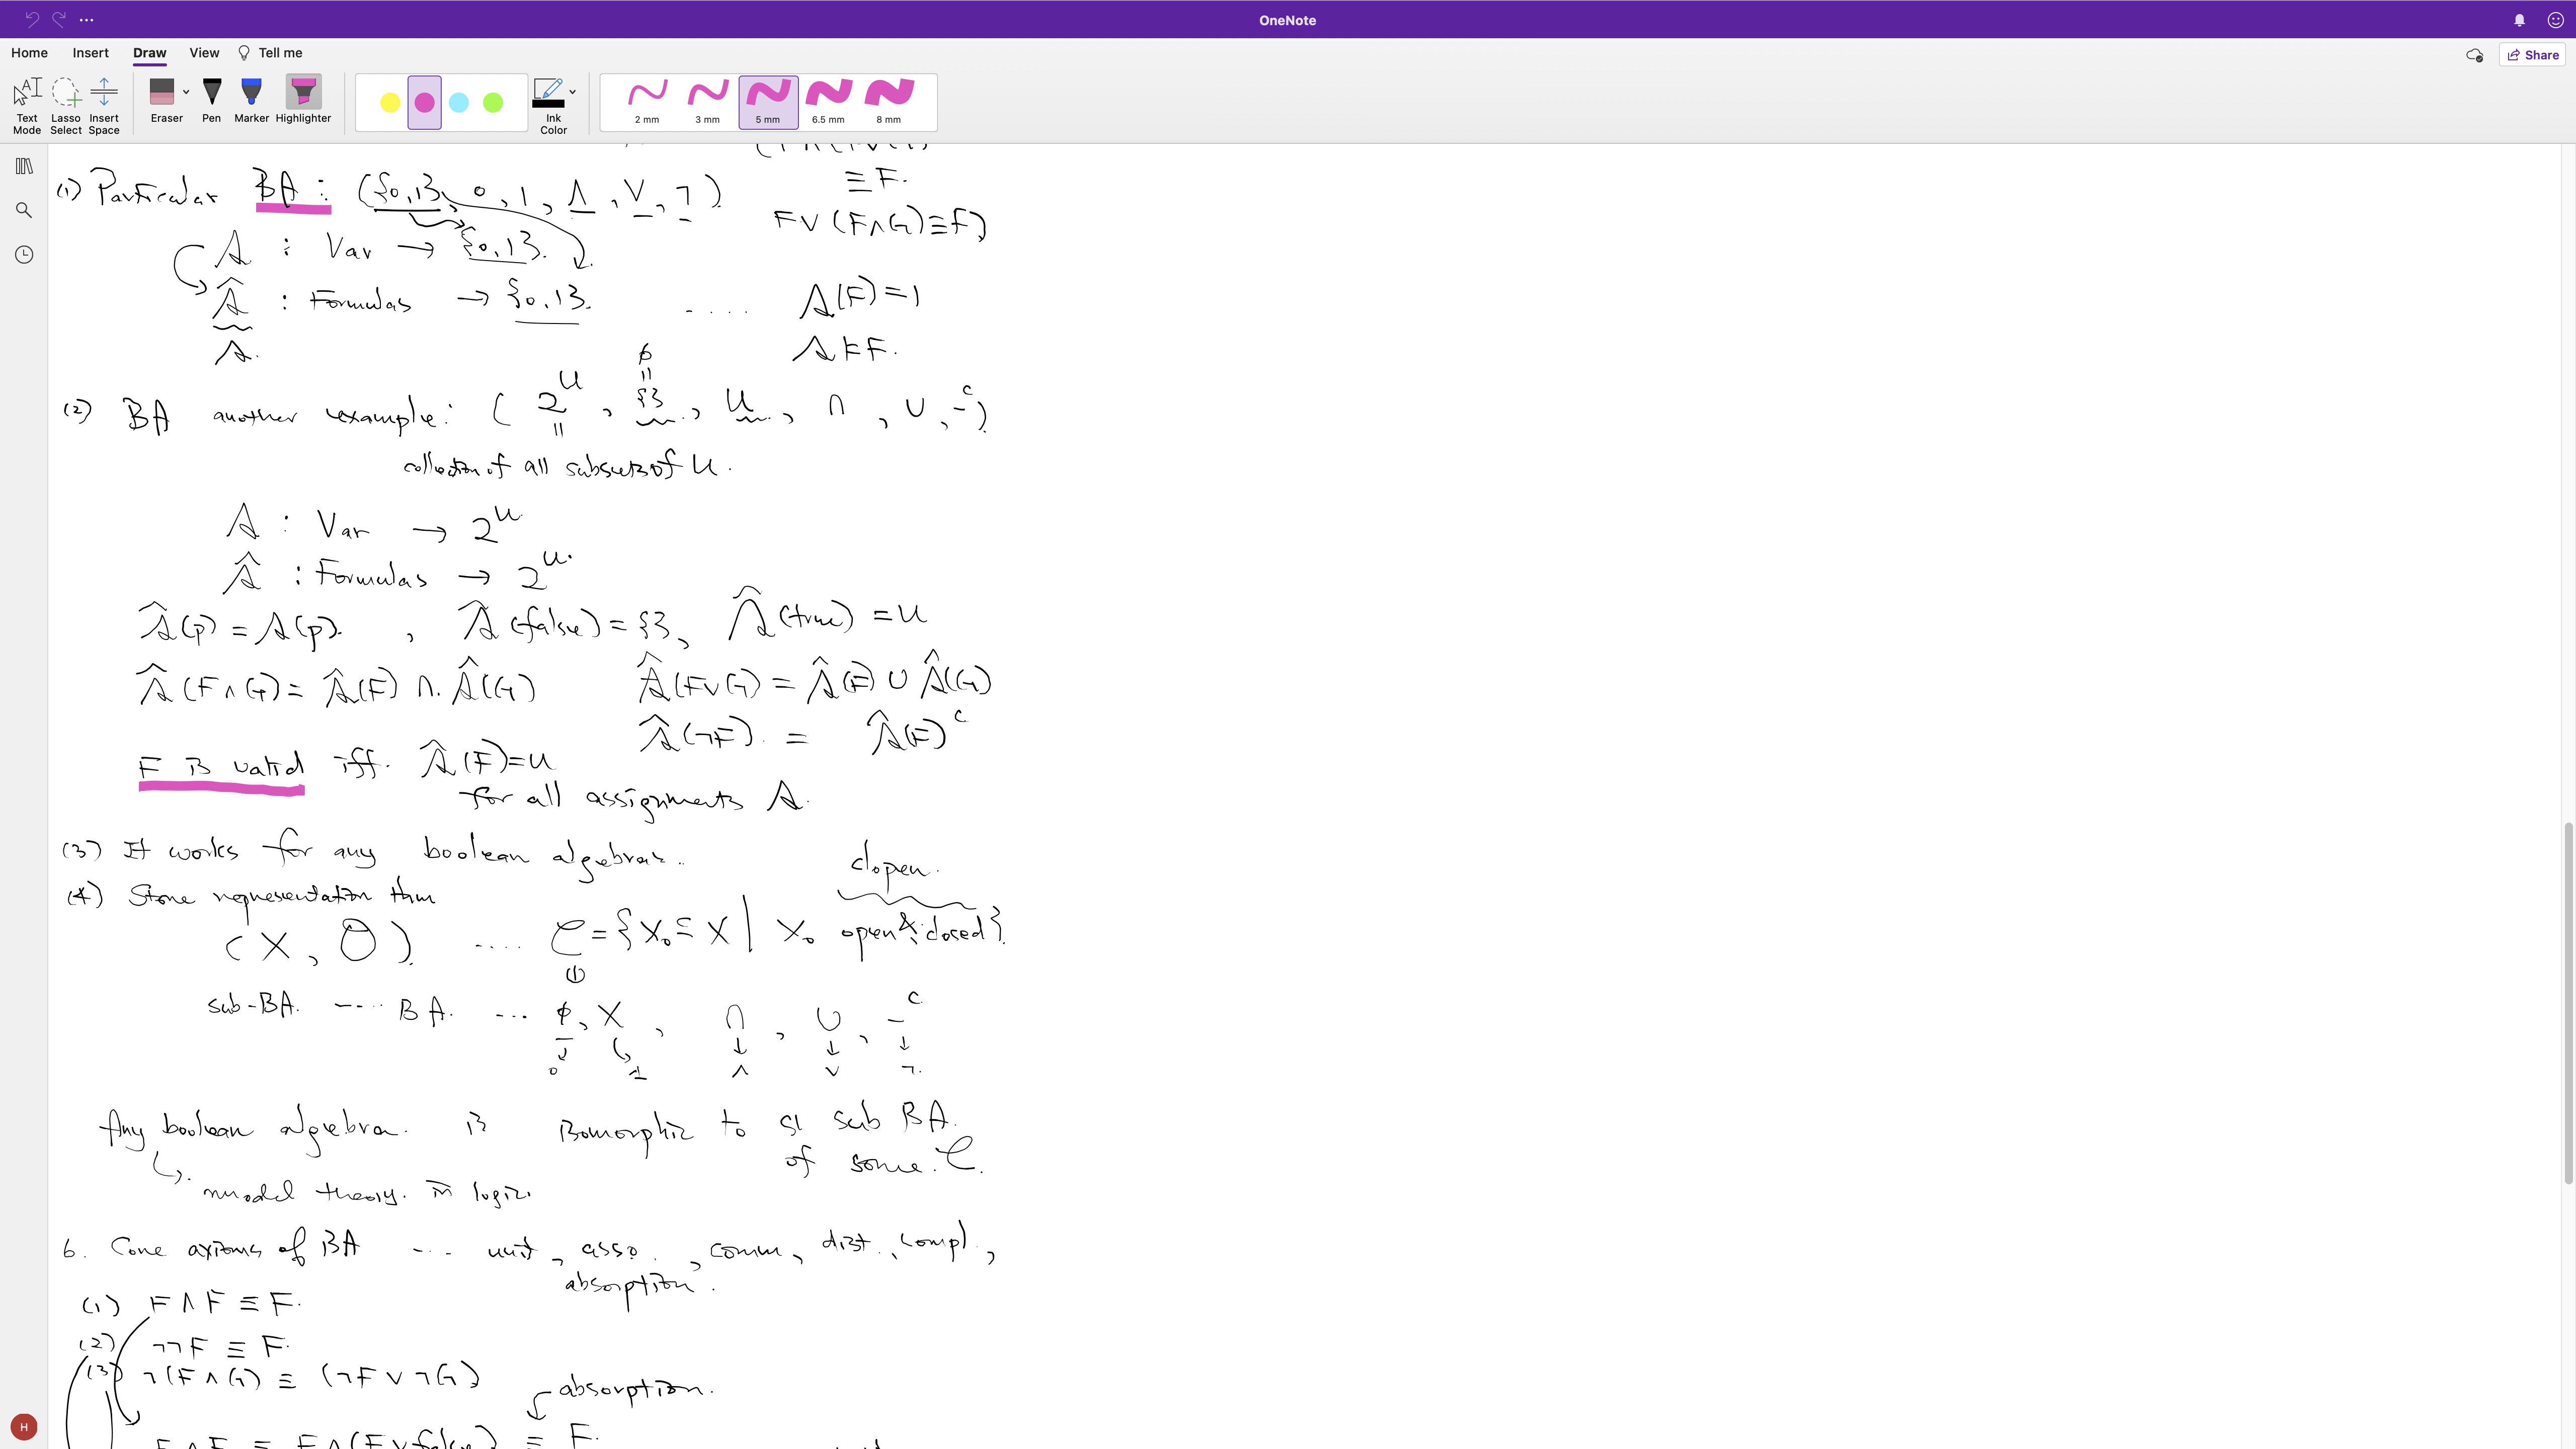 OneNote
Home Insert Draw View Tell me
Share
Text Mode
Lasso Select
Insert Space
Eraser
Pen
Marker
Highlighter
Ink Color
2 mm 3 mm 5 mm 6.5 mm 8 mm
(1) Particular BA : ({0,1}, 0, 1, ∧, ∨, ¬)
≡ F.
F∨(F∧G)≡F)
A : Var → {0,1}.
Â : Formulas → {0,1}.
.... A(F)=1
A.
A ⊨ F.
φ
=
(2) BA another example: ( 2^U, {}, U, ∩, ∪, -^c)
=
collection of all subsets of U.
A : Var → 2^U
Â : Formulas → 2^U.
Â(p) = A(p). , Â(false) = {}, Â(true) = U
Â(F∧G) = Â(F) ∩ Â(G) Â(F∨G) = Â(F) ∪ Â(G)
Â(¬F) = Â(F)^c
F is valid iff. Â(F)=U
for all assignments A.
(3) It works for any boolean algebras.
clopen.
(4) Stone representation thm
(X, O) .... C = {X₀ ⊆ X | X₀ open & closed}.
sub-BA. ---- BA. ... φ, X, ∩, ∪, -^c
0 1 ∧ ∨ ¬.
Any boolean algebra. is isomorphic to a sub BA.
of some C.
model theory. in logic.
6. Core axioms of BA ... unit, asso., comm, dist., compl.,
absorption.
(1) F∧F ≡ F.
(2) ¬¬F ≡ F.
(3) ¬(F∧G) ≡ (¬F∨¬G)
absorption.
F∧F ≡ F∧(F∨false) ≡ F.
H